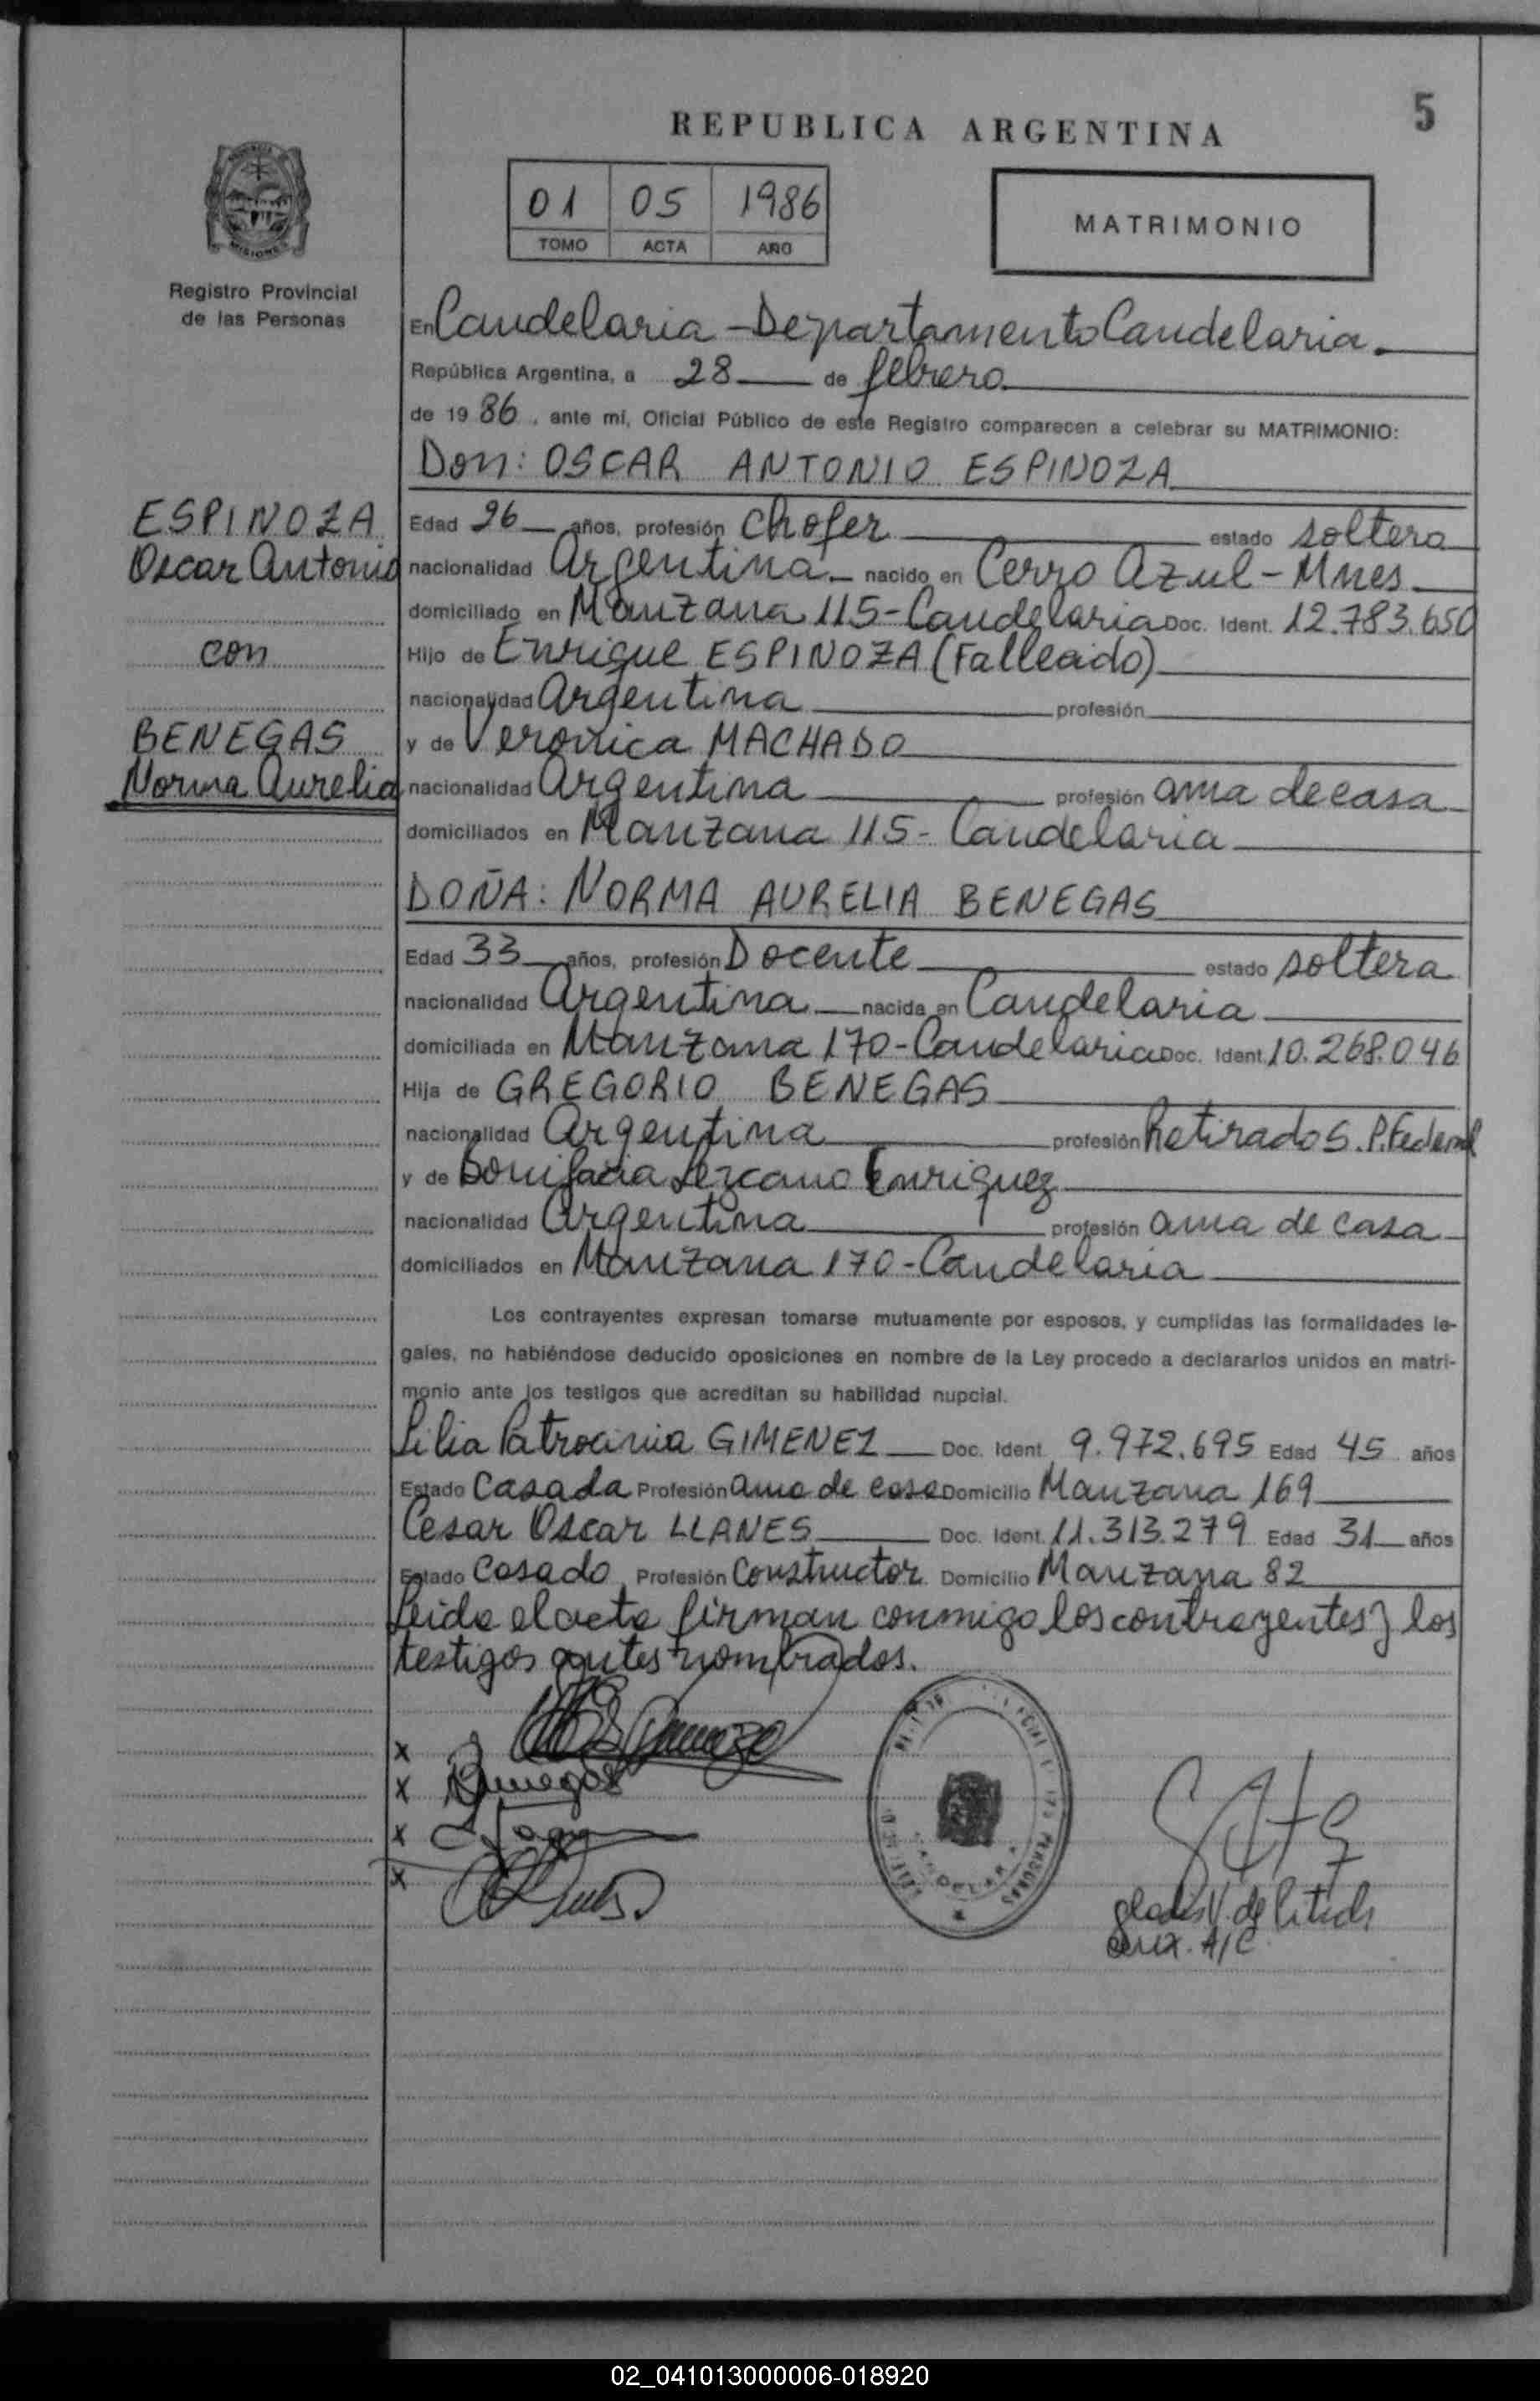 5
REPUBLICA ARGENTINA
01 05 1986
TOMO ACTA AÑO
MATRIMONIO
MISIONES
Registro Provincial
de las Personas
En Candelaria - Departamento Candelaria.
República Argentina, a 28 de febrero
de 19 86, ante mí, Oficial Público de este Registro comparecen a celebrar su MATRIMONIO:
Don: OSCAR ANTONIO ESPINOZA
ESPINOZA
Oscar Antonio
con
BENEGAS
Norma Aurelia
Edad 26 años, profesión Chofer estado soltero
nacionalidad Argentina nacido en Cerro Azul - Mnes
domiciliado en Manzana 115 - Candelaria Doc. Ident. 12.783.650
Hijo de Enrique ESPINOZA (Fallecido)
nacionalidad Argentina profesión
y de Veronica MACHADO
nacionalidad Argentina profesión ama de casa
domiciliados en Manzana 115 - Candelaria
DOÑA: NORMA AURELIA BENEGAS
Edad 33 años, profesión Docente estado soltera
nacionalidad Argentina nacida en Candelaria
domiciliada en Manzana 170 - Candelaria Doc. Ident. 10.268.046
Hija de GREGORIO BENEGAS
nacionalidad Argentina profesión Retirado S.P. Federal
y de Bonifacia Lezcano Enriquez
nacionalidad Argentina profesión ama de casa
domiciliados en Manzana 170 - Candelaria
Los contrayentes expresan tomarse mutuamente por esposos, y cumplidas las formalidades le-
gales, no habiéndose deducido oposiciones en nombre de la Ley procedo a declararlos unidos en matri-
monio ante los testigos que acreditan su habilidad nupcial.
Lilia Patrocinia GIMENEZ Doc. Ident. 9.972.695 Edad 45 años
Estado Casada Profesión ama de casa Domicilio Manzana 169
Cesar Oscar LLANES Doc. Ident. 11.313.279 Edad 31 años
Estado Casado Profesión Constructor Domicilio Manzana 82
Leida el acta firman conmigo los contrayentes y los
testigos antes nombrados.
x
x Benegas
x
x
aux. A/C
02_041013000006-018920